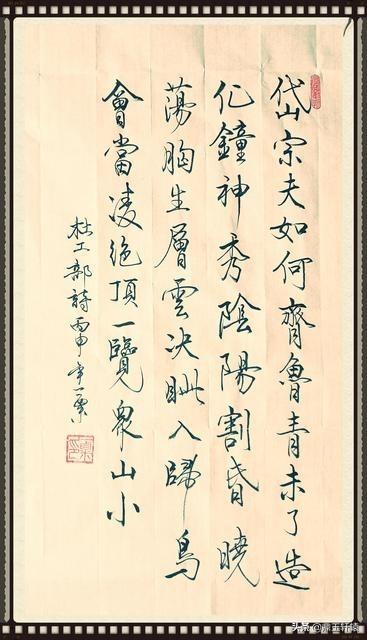 岱宗夫如何齊魯青未了造
化鐘神秀陰陽割昏曉
蕩胸生層雲決眦入歸鳥
會當凌絕頂一覽眾山小
杜工部詩丙申年一
头条